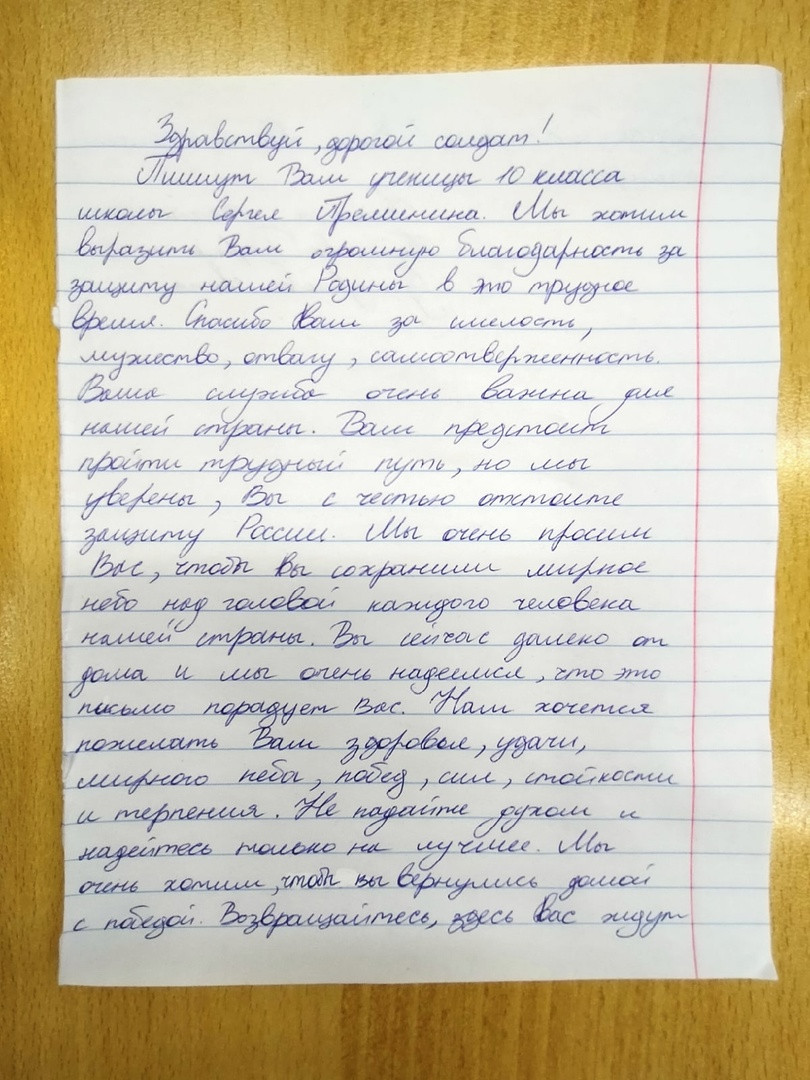 Здравствуй, дорогой солдат!
Пишут Вам ученицы 10 класса
школы Сергея Преминина. Мы хотим
выразить Вам огромную благодарность за
защиту нашей Родины в это трудное
время. Спасибо Вам за смелость,
мужество, отвагу, самоотверженность.
Ваша служба очень важна для
нашей страны. Вам предстоит
пройти трудный путь, но мы
уверены, Вы с честью отстоите
защиту России. Мы очень просим
Вас, чтобы Вы сохранили мирное
небо над головой каждого человека
нашей страны. Вы сейчас далеко от
дома и мы очень надеемся, что это
письмо порадует Вас. Нам хочется
пожелать Вам здоровья, удачи,
мирного неба, побед, сил, стойкости
и терпения. Не падайте духом и
надейтесь только на лучшее. Мы
очень хотим, чтобы вы вернулись домой
с победой. Возвращайтесь, здесь Вас ждут